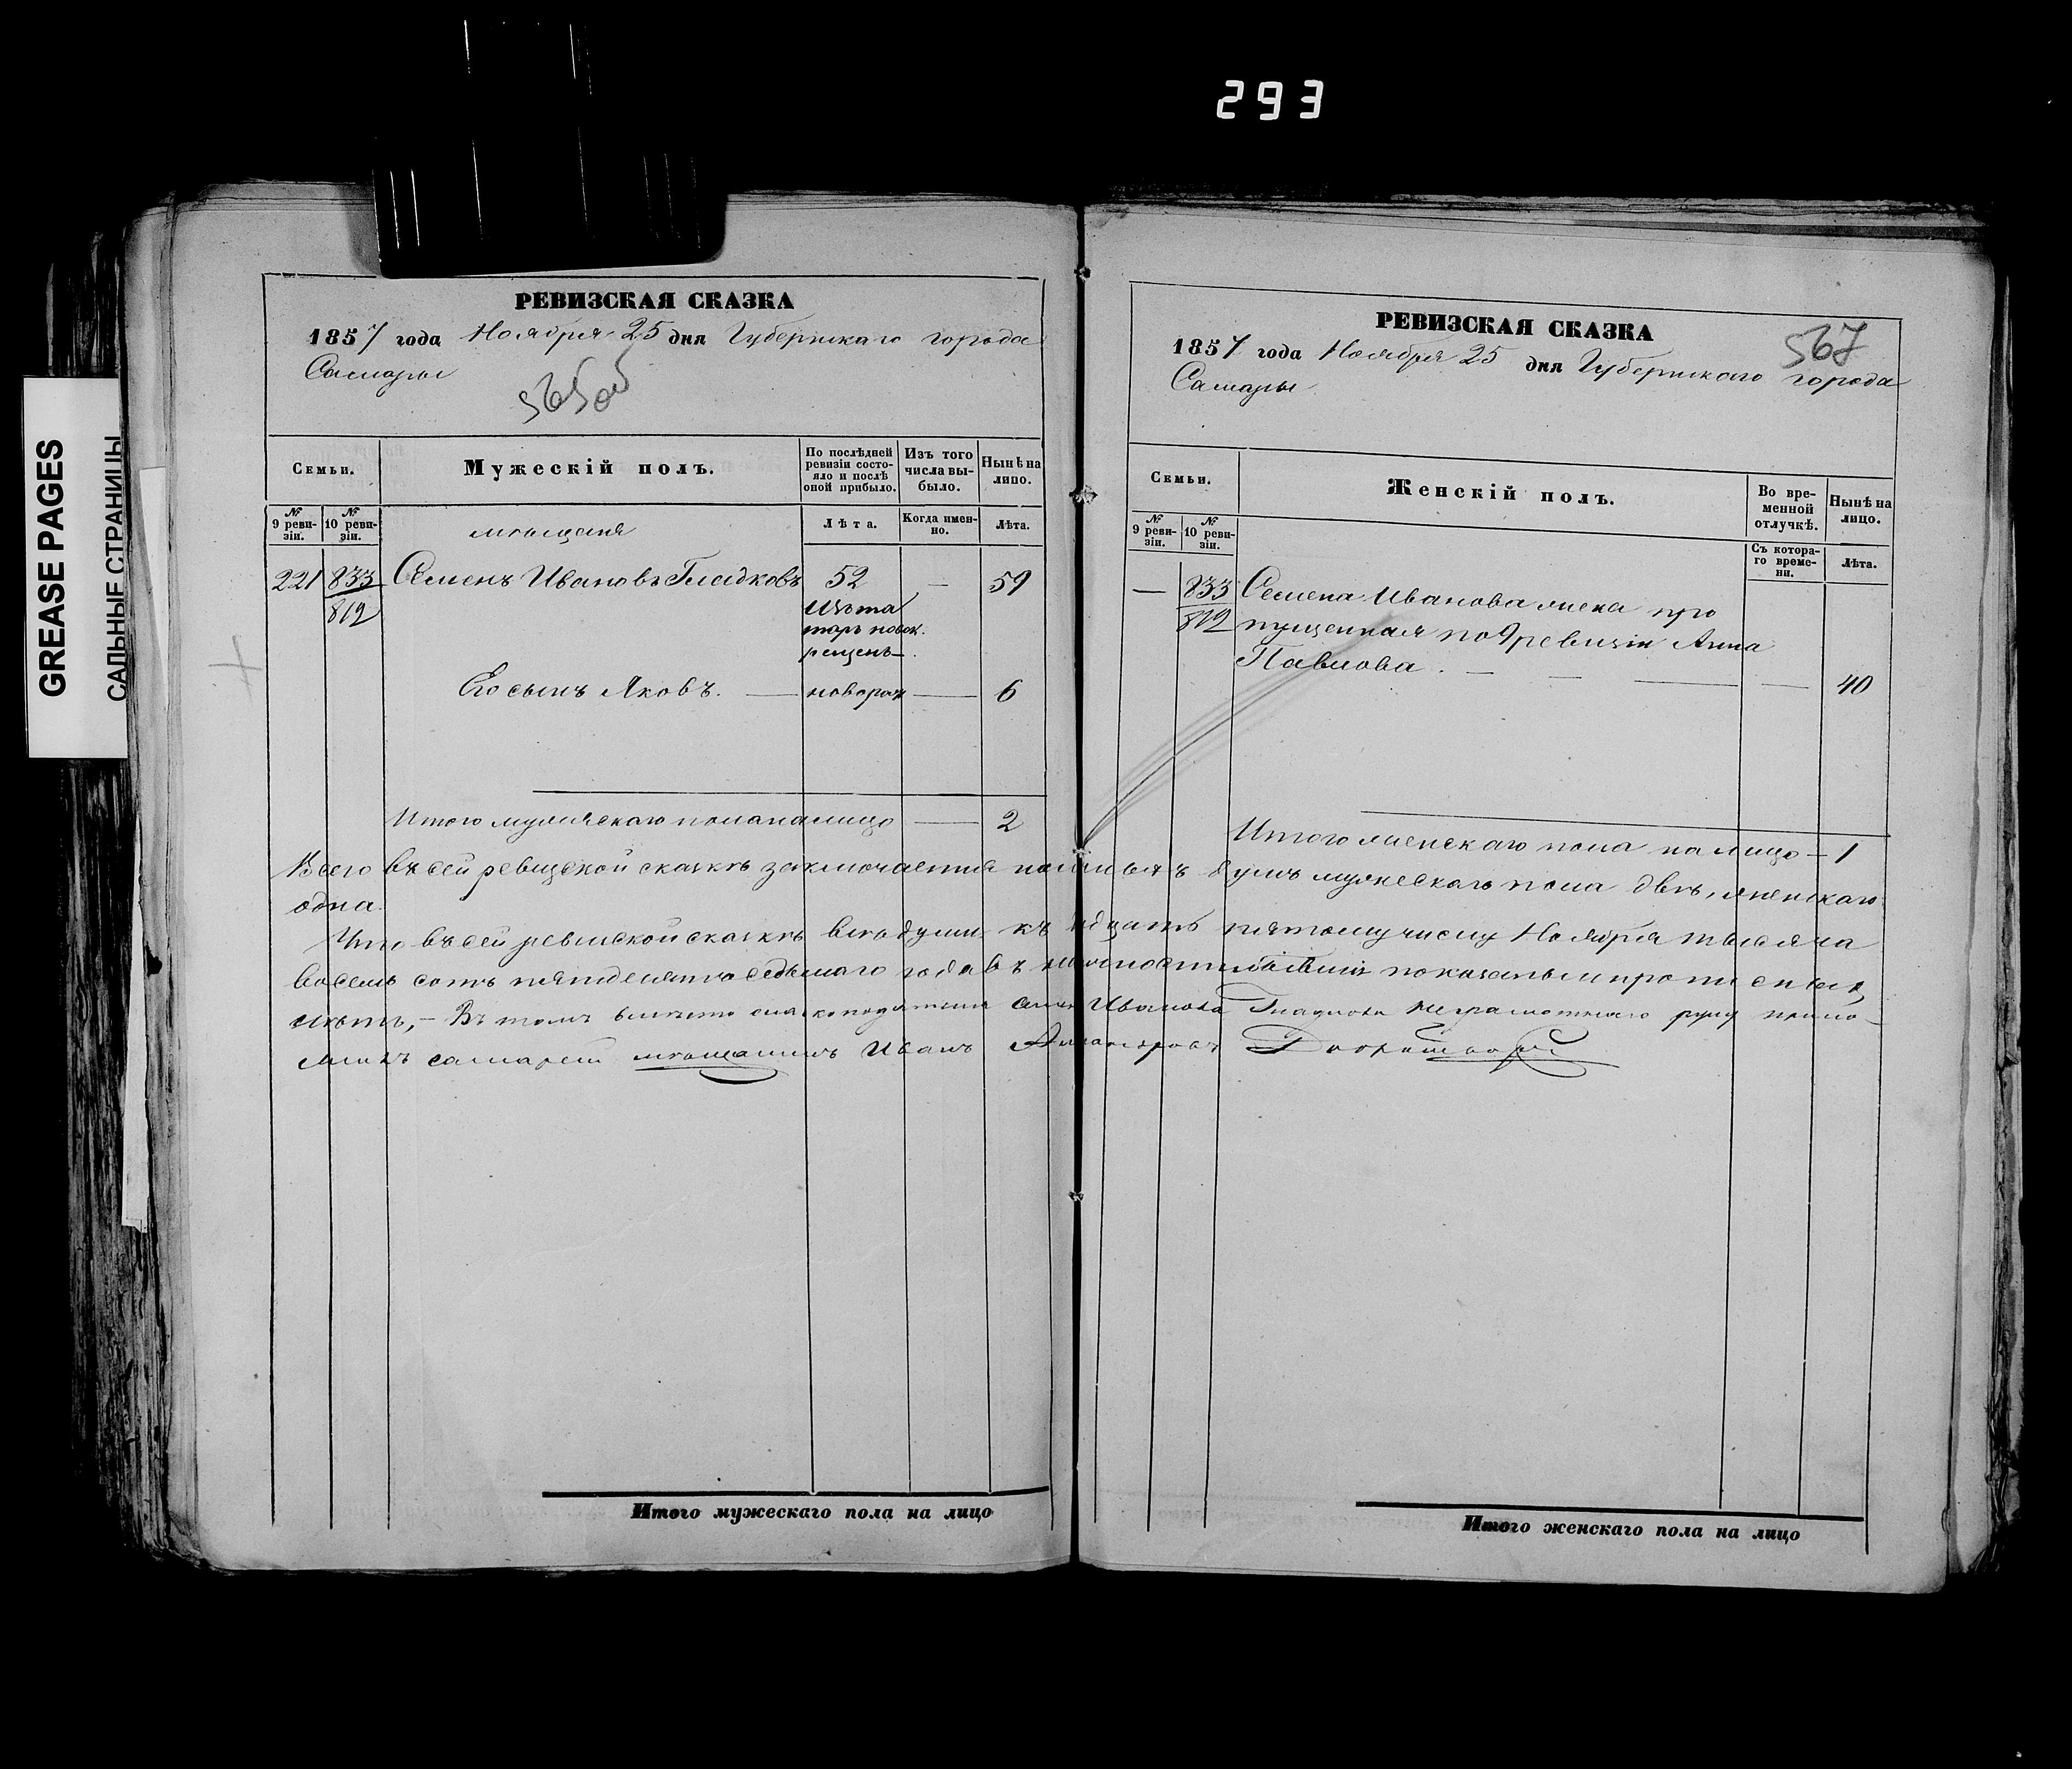 293
GREASE PAGES
САЛЬНЫЕ СТРАНИЦЫ
РЕВИЗСКАЯ СКАЗКА
1857 года Ноября 25 дня Губернскаго города
Самары
Семьи.
Мужескій полъ.
По послѣдней ревизіи состояло и послѣ оной прибыло.
Изъ того числа выбыло.
Нынѣ на лицо.
№ 9 ревизіи.
№ 10 ревизіи.
Лѣта.
Когда именно.
Лѣта.
мѣщане
221 833 Семенъ Ивановъ Гладковъ 52 — 59
812
Изъ та
таръ новок.
рещенъ
Его сынъ Яковъ. — новорож — 6
Итого мужескаго пола на лицо — 2
РЕВИЗСКАЯ СКАЗКА
567
1857 года Ноября 25 дня Губернскаго города
Самары
Семьи.
Женскій полъ.
Во временной отлучкѣ.
Нынѣ на лицо.
№ 9 ревизіи.
№ 10 ревизіи.
Съ котораго времени.
Лѣта.
— 833 Семена Иванова жена про
812 пущенная по 9 ревизіи Анна
Павлова. — — — — 40
Итого женскаго пола на лицо — 1
Всего въ сей ревизской сказкѣ заключается душъ мужескаго пола двѣ, женскаго
одна.
Что въ сей ревизской сказкѣ всѣ души къ пятому числу Ноября тысяча
восемь сотъ пятьдесятъ седьмаго года въ показаны и прописныхъ
нѣтъ, — Въ томъ вмѣсто Семена Иванова Гладкова неграмотнаго руку прило
жилъ самарскій мѣщанинъ Иванъ
Итого мужескаго пола на лицо
Итого женскаго пола на лицо